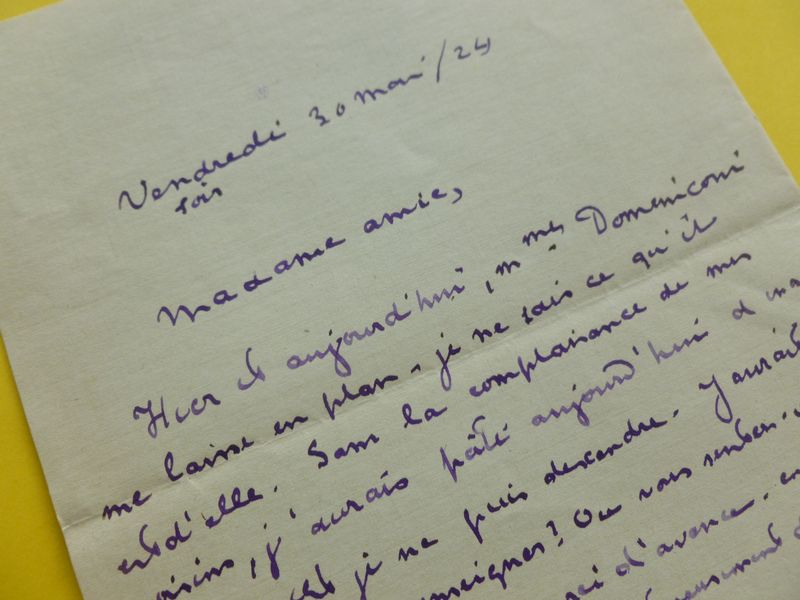 Vendredi 30 mai /24
soir
Madame amie,
Hier et aujourd'hui, mme Domeniconi
me laisse en plan, je ne sais ce qu'il
est d'elle. Sans la complaisance de mes
voisins, j'aurais pâti aujourd'hui
je ne puis descendre. J'aurais
enseigner? Ou vous
merci d'avance.